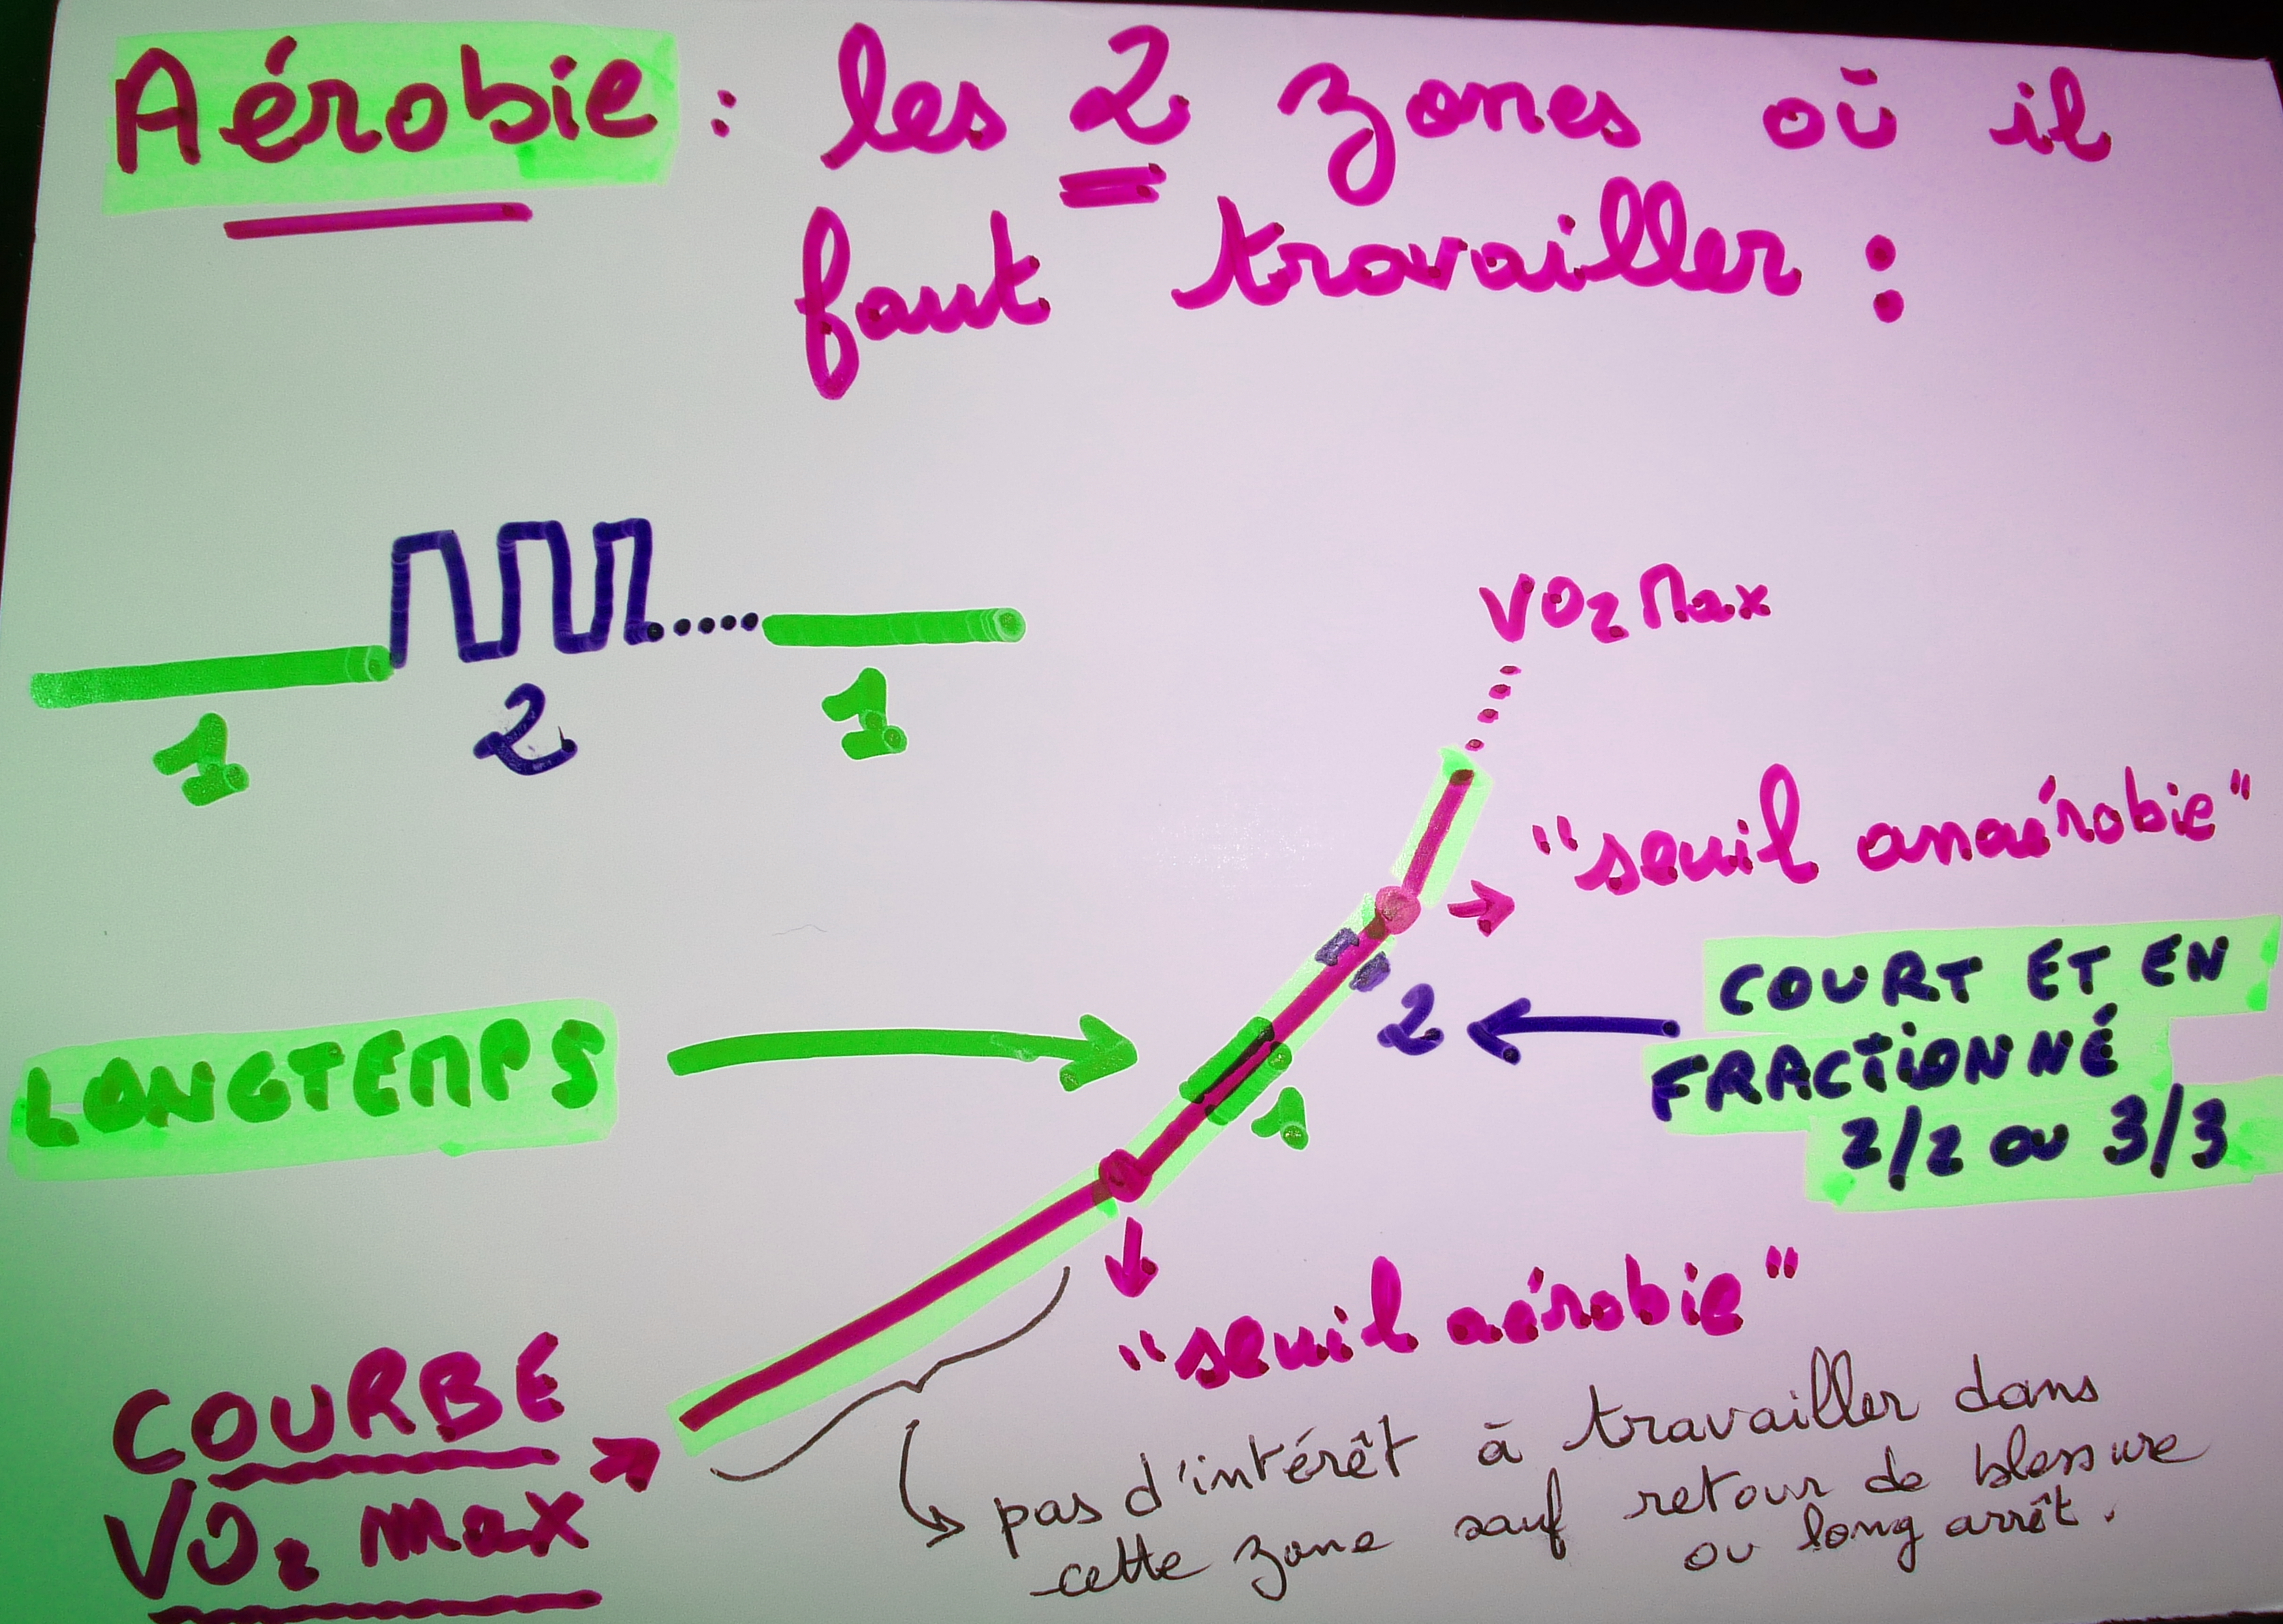 Aérobie : les 2 zones où il
faut travailler :
1 2 1
VO2 Max
"seuil anaérobie"
2
COURT ET EN
FRACTIONNÉ
2/2 ou 3/3
LONGTEMPS
1
"seuil aérobie"
COURBE
VO2 max
pas d'intérêt à travailler dans
cette zone sauf retour de blessure
ou long arrêt.